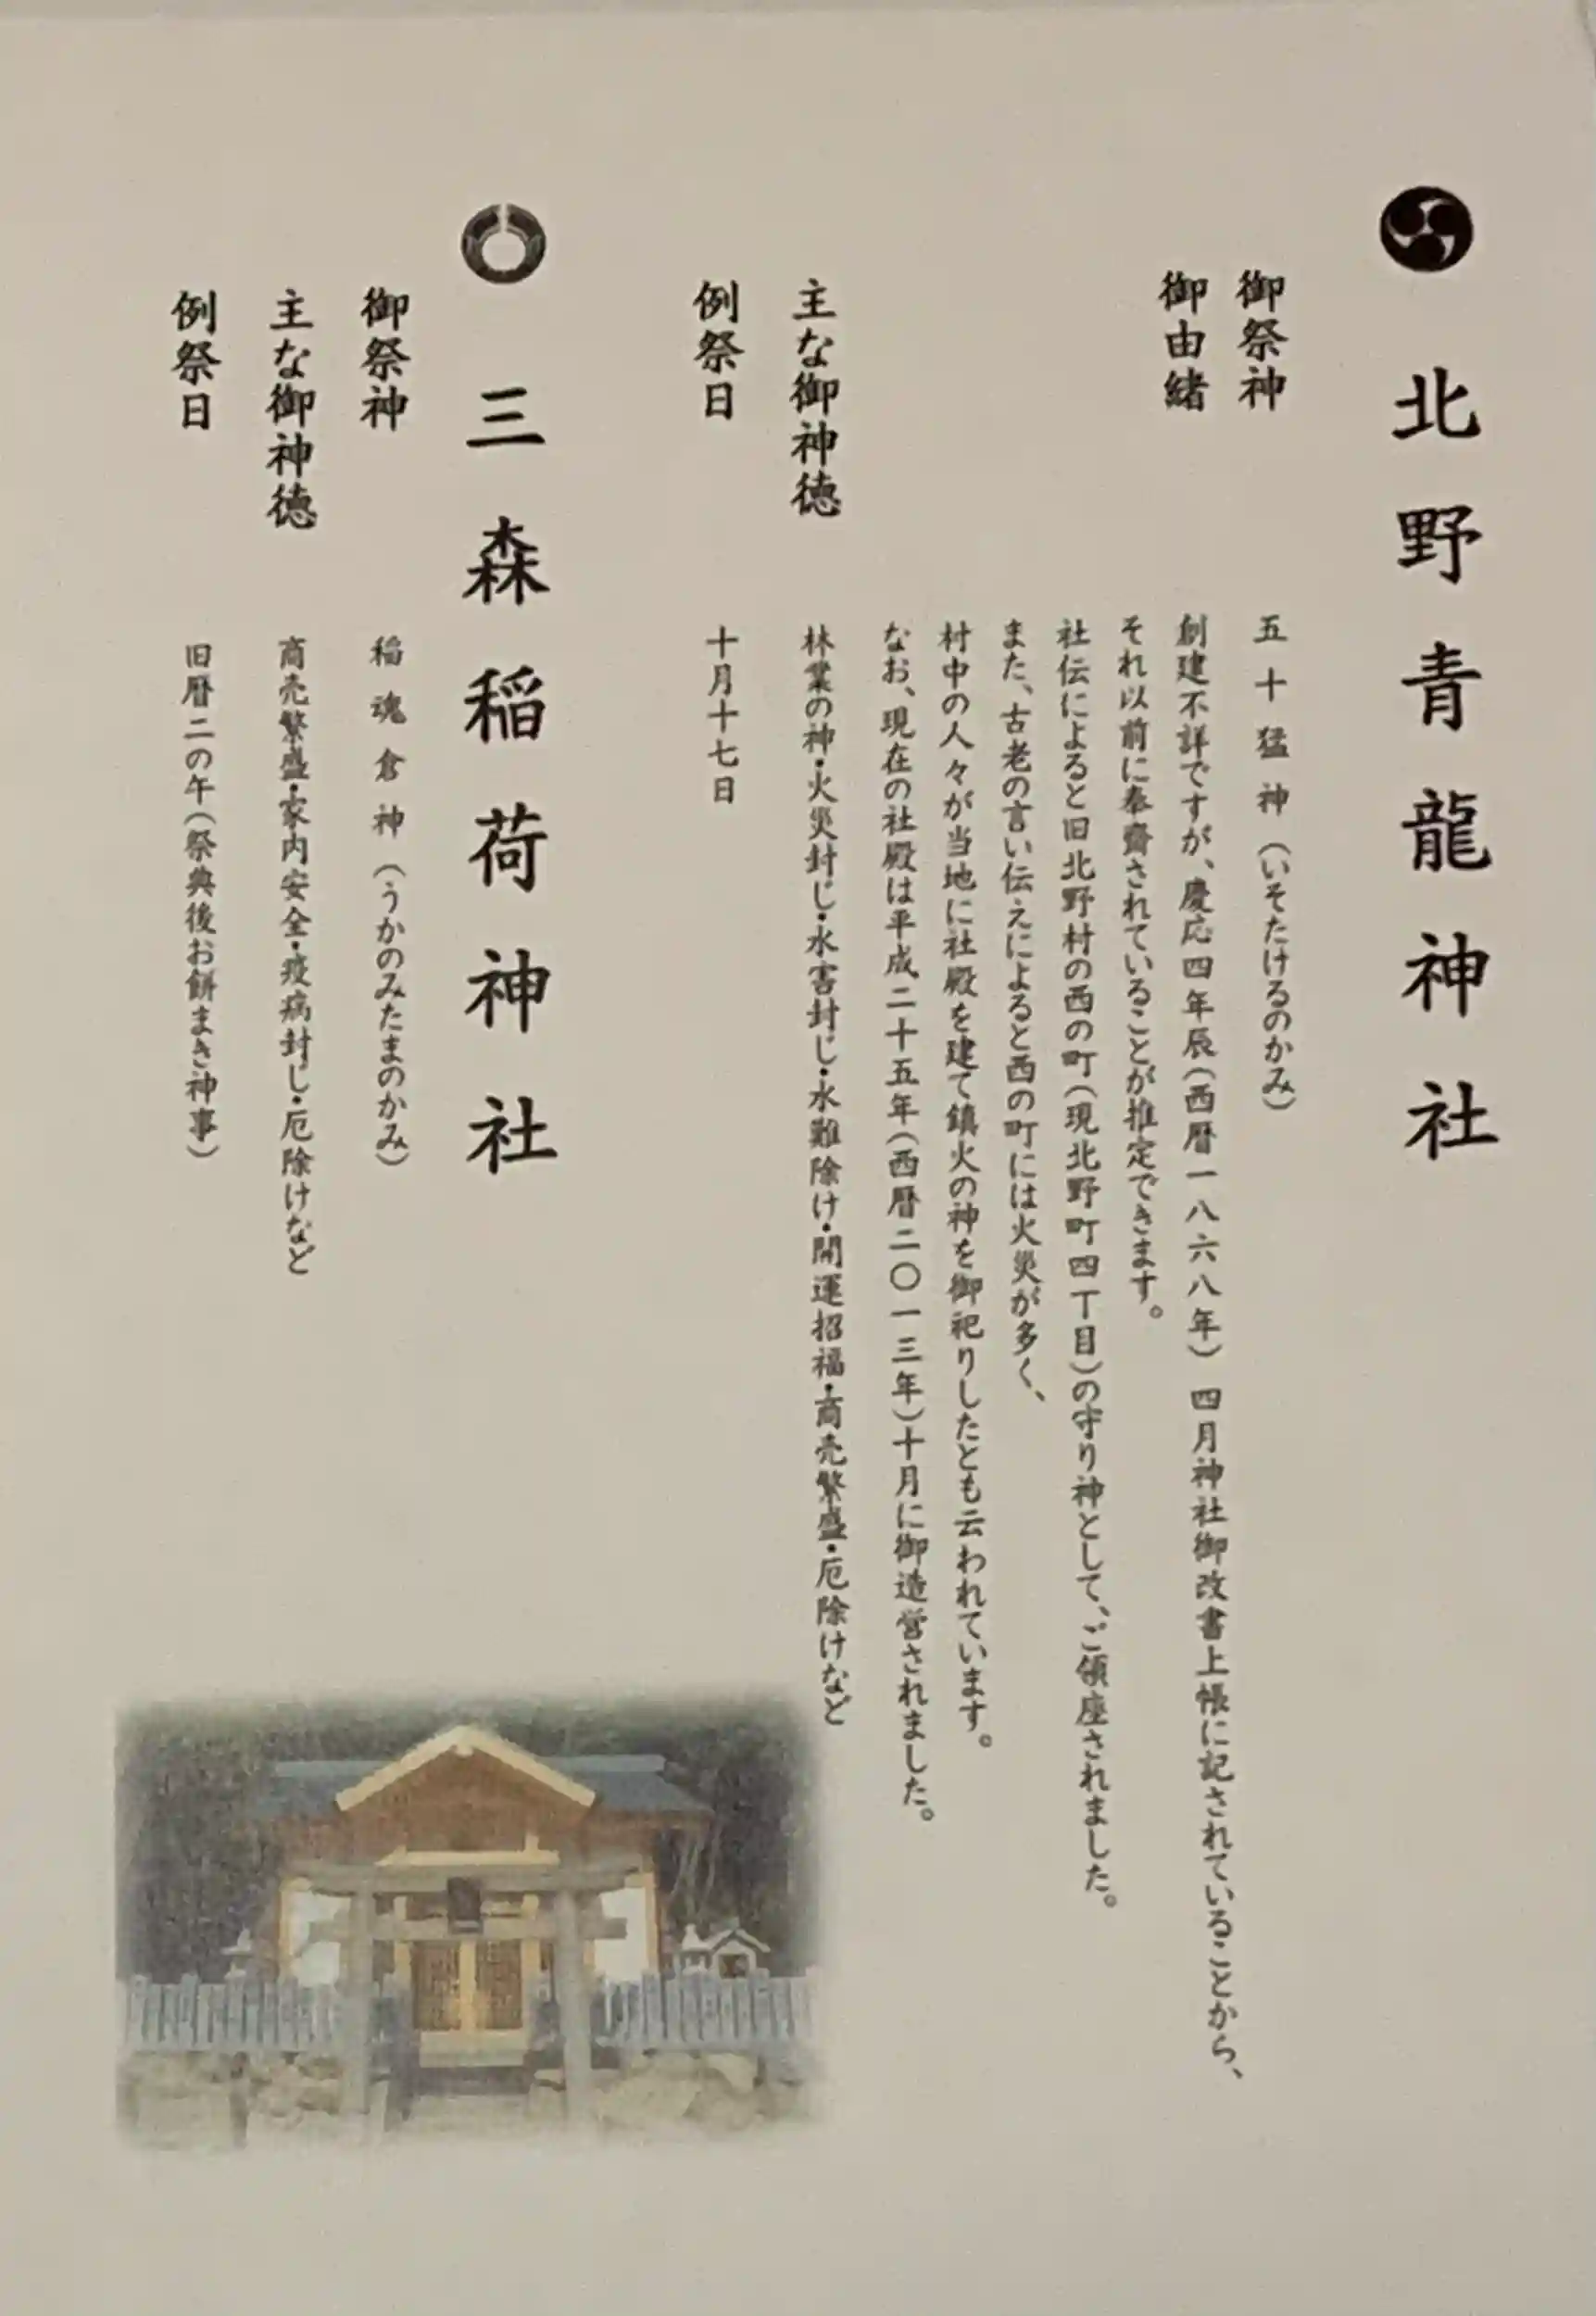 北野青龍神社
御祭神　五十猛神（いそたけるのかみ）
御由緒　創建不詳ですが、慶応四年辰（西暦一八六八年）四月神社御改書上帳に記されていることから、
それ以前に奉齋されていることが推定できます。
社伝によると旧北野村の西の町（現北野町四丁目）の守り神として、ご領座されました。
また、古老の言い伝えによると西の町には火災が多く、
村中の人々が当地に社殿を建て鎮火の神を御祀りしたとも云われています。
なお、現在の社殿は平成二十五年（西暦二〇一三年）十月に御造営されました。
主な御神徳　林業の神・火災封じ・水害封じ・水難除け・開運招福・商売繁盛・厄除けなど
例祭日　十月十七日
三森稲荷神社
御祭神　稲魂倉神（うかのみたまのかみ）
主な御神徳　商売繁盛・家内安全・疫病封じ・厄除けなど
例祭日　旧暦二の午（祭典後お餅まき神事）